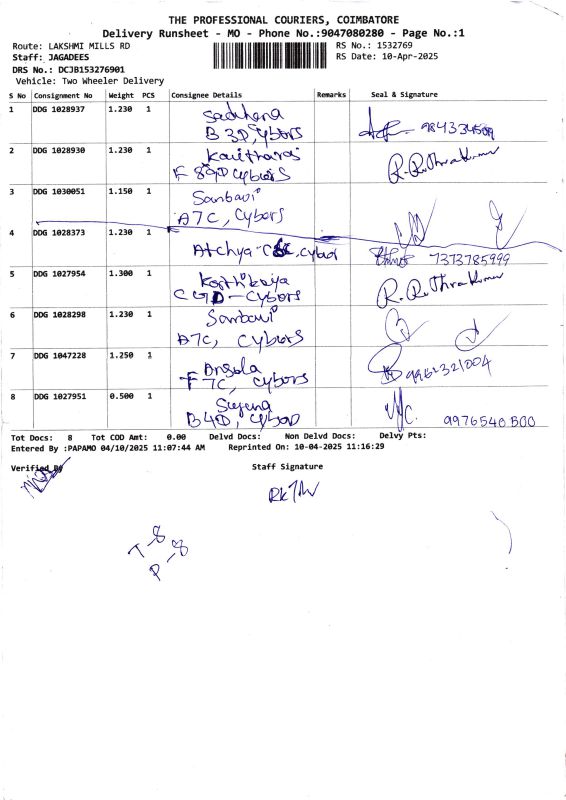 THE PROFESSIONAL COURIERS, COIMBATORE
Delivery Runsheet - MO - Phone No.:9047080280 - Page No.:1
Route: LAKSHMI MILLS RD RS No.: 1532769
Staff: JAGADEES RS Date: 10-Apr-2025
DRS No.: DCJB153276901
Vehicle: Two Wheeler Delivery
S No Consignment No Weight PCS Consignee Details Remarks Seal & Signature
1 DDG 1028937 1.230 1 Sadhana
B 3D, Cybors
2 DDG 1028930 1.230 1
F 89D Cybors
3 DDG 1030051 1.150 1 Sanbavi
A7C, Cybors
4 DDG 1028373 1.230 1
Atchya- Cybor 7373785999
5 DDG 1027954 1.300 1
- Cybors
6 DDG 1028298 1.230 1 Sanbavi
A7C, Cybors
7 DDG 1047228 1.250 1
F 7C, Cybors
8 DDG 1027951 0.500 1
B4D, 9976540500
Tot Docs: 8 Tot COD Amt: 0.00 Delvd Docs: Non Delvd Docs: Delvy Pts:
Entered By :PAPAMO 04/10/2025 11:07:44 AM Reprinted On: 10-04-2025 11:16:29
Verified By Staff Signature
T-8
P-8